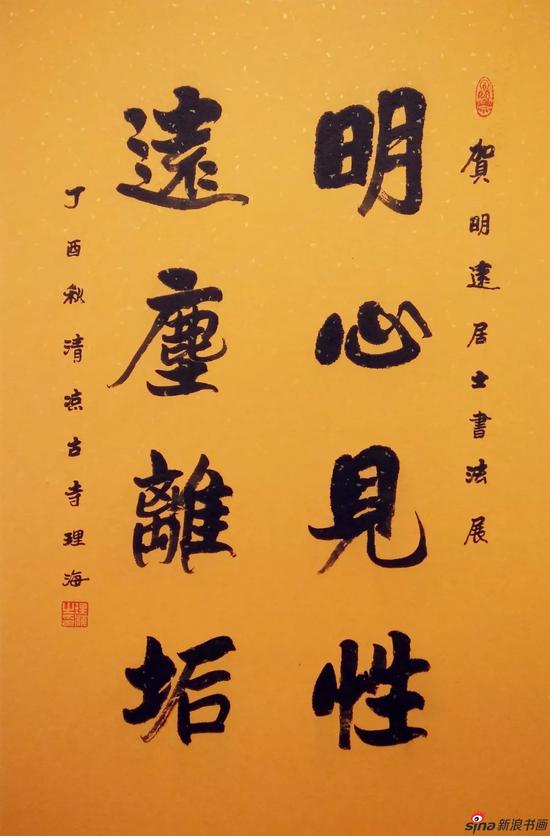 賀明遠居士書法展
明心見性
遠塵離垢
丁酉秋清凉古寺理海
sina新浪书画